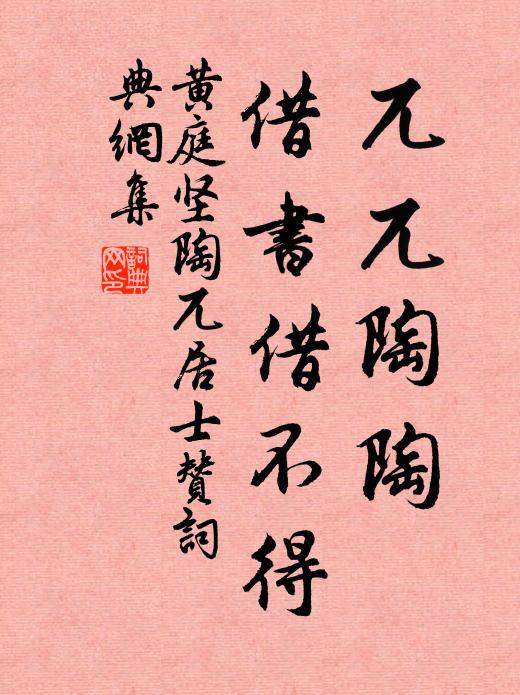 兀兀陶陶
借書借不得
黃庭坚陶兀居士赞詞
典網集
詞典
网印